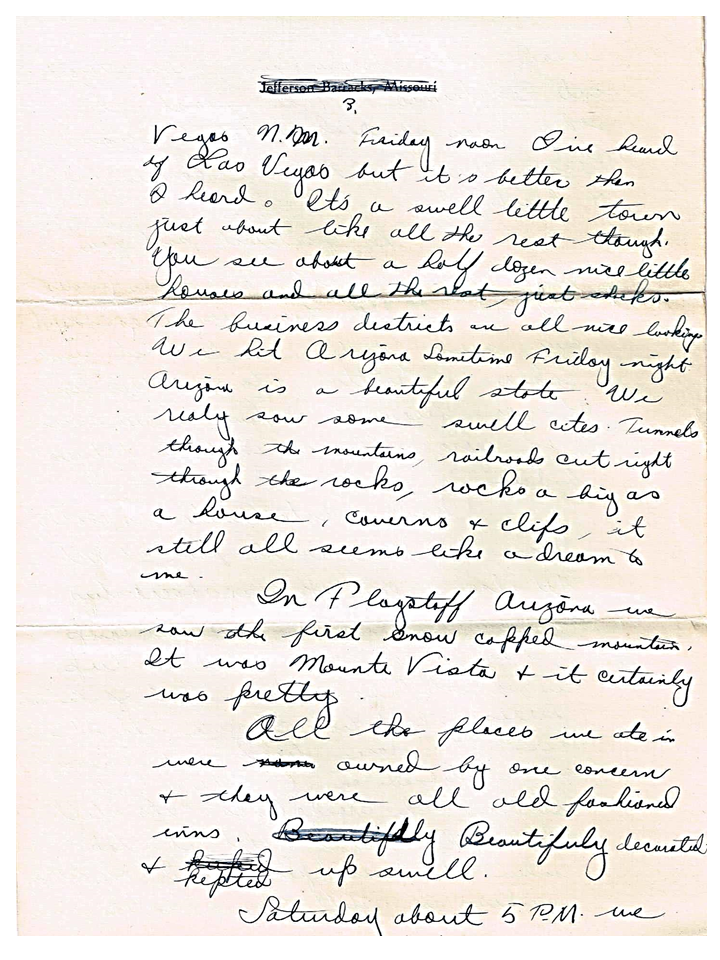 Jefferson Barracks, Missouri
3.
Vegas N.M. Friday noon I've heard
of Las Vegas but it's better than
I heard. It's a swell little town
just about like all the rest though.
You see about a half dozen nice little
houses and all the rest, just shcks.
The business districts are all nice looking
We hit Arizona Sometime Friday night
Arizona is a beautiful state. We
realy saw some swell cites. Tunnels
through the mountains, railroads cut right
through the rocks, rocks a big as
a house, caverns & clifs, it
still all seems like a dream to
me.
In Flagstaff Arizona we
saw the first snow capped mountain.
It was Mounte Vista & it certainly
was pretty.
All the places we ate in
were owned by one concern
& they were all old fashioned
inns. Beautifully Beautifuly decorated
& kepted up swell.
Saturday about 5 P.M. we